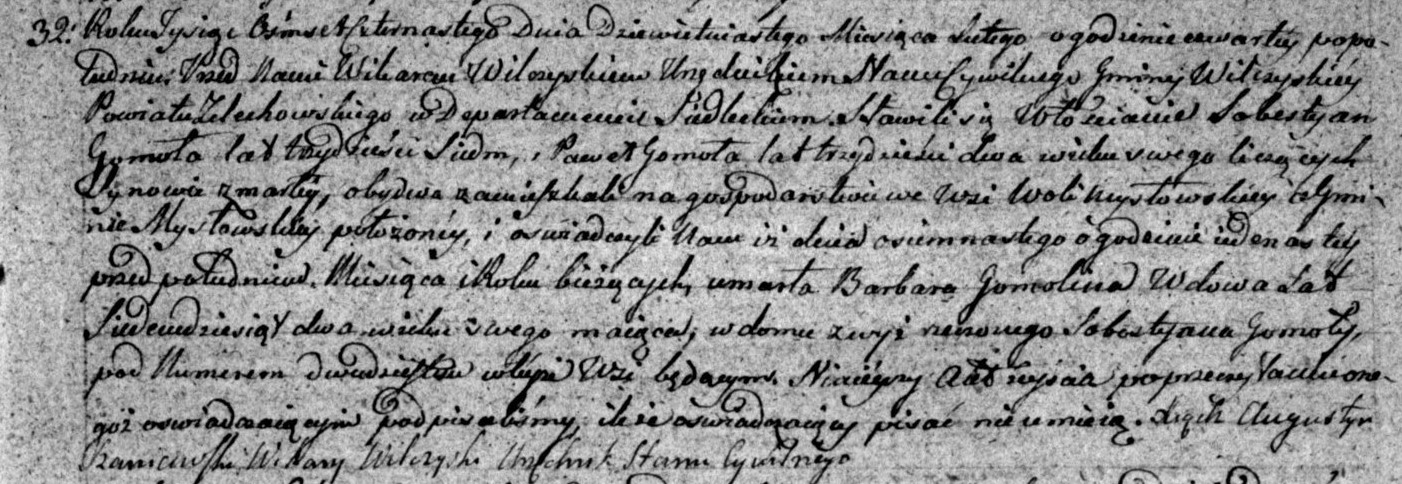 32. Roku Tysiąc Ośmset Czternastego Dnia Dziewietnastego Miesiąca Lutego o godzinie czwartey popo-
łudniu. Przed Nami Wikarem Wilczyskiem Urzędnikiem Stanu Cywilnego Gminy Wilczyskiey
Powiatu Zelechowskiego w Departamencie Siedleckiem. Stawili się Włościanie Sobestyan
Gomoła lat trzydzieści siedm, i Paweł Gomoła lat trzydzieści dwa wieku swego liczących
Synowie zmarłey, obydwa zamieszkali na gospodarstwie we wsi Woli Mysłowskiey w Gmi-
nie Mysłowskiey położoney, i oswiadczyli Nam iż dnia osiemnastego o godzinie iedenastey
przed południem. Miesiąca i Roku bieżących, umarła Barbara Gomolina Wdowa Lat
Siedemdziesiąt dwa wieku swego maiąca, w domu zwyż rzeczonego Sobestyana Gomoły,
pod Numerem dwudziestem w teyże Wsi będącym. Ninieyszy Akt Zeyścia po przeczytaniu one-
goż oswiadczaiącym podpisaliśmy, ileże oswiadczaiący pisać nieumieią. Augustyn
Wikary Wilczyski Urzędnik Stanu Cywilnego